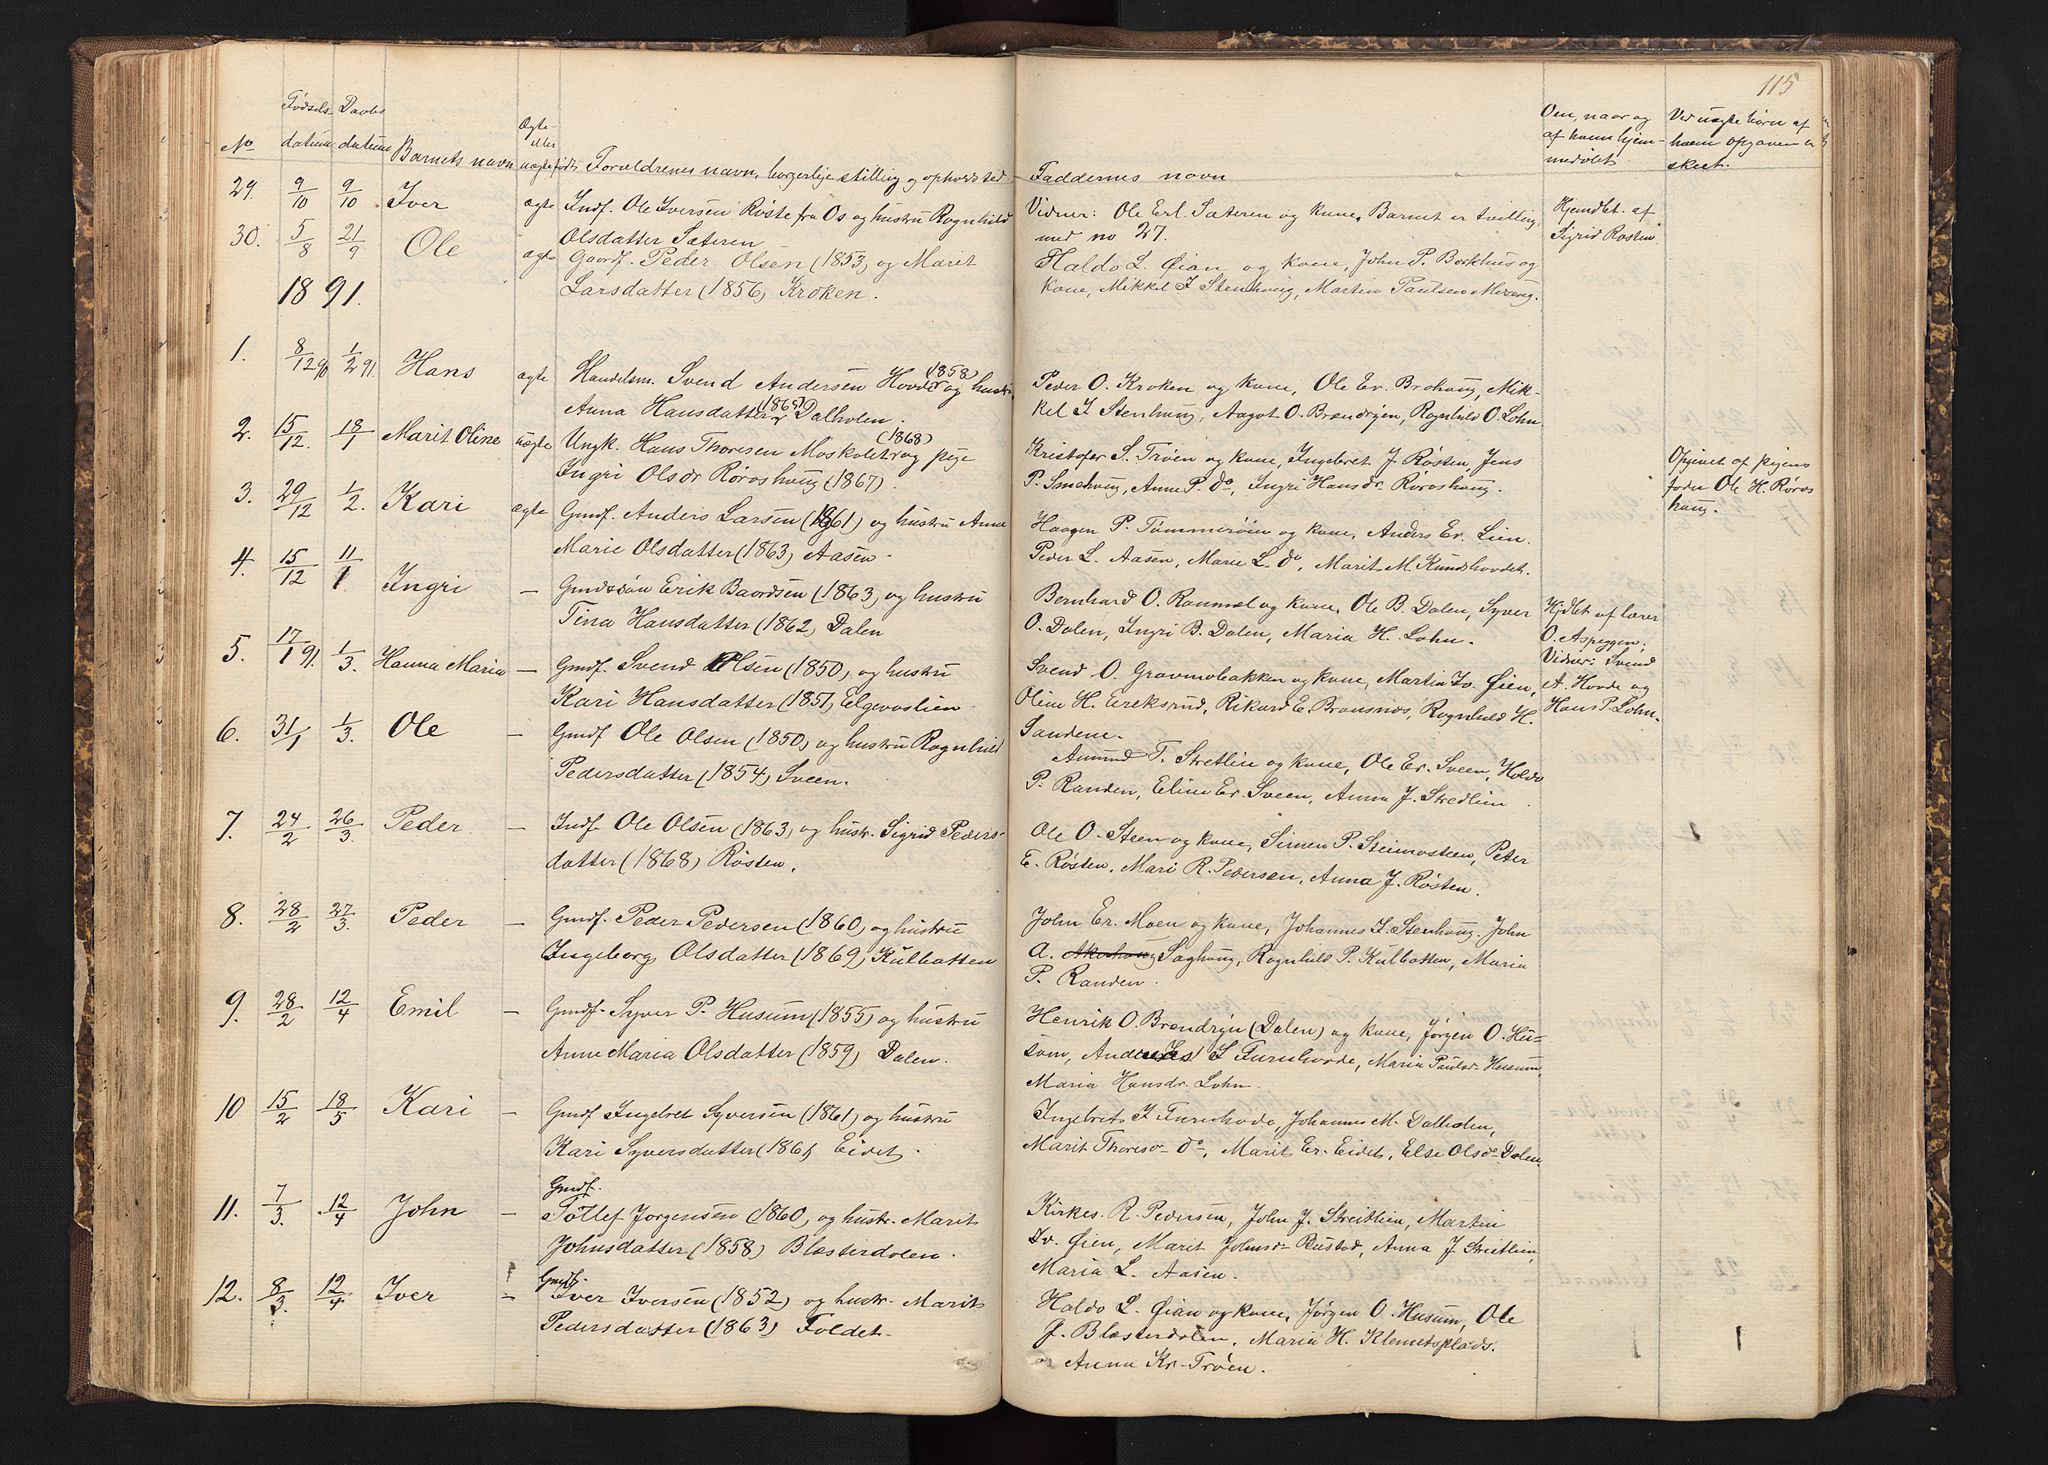 115
No
Fødsels-
datum
Daabs
datum
Barnets navn
Ægte
eller
uægte født
Forældrenes navn, borgerlige stilling og opholdssted
Faddernes navn
Om, naar og
af hvem hjem-
medøbt
Ved uægte børn af
hvem opgaven er
skeet.
29. 9/10 9/10 Iver ægte Indf. Ole Iversen Røste fra Os og hustru Ragnhild
Olsdatter Sæteren
Vidner: Ole Erl. Sæteren og kone, Barnet er tvilling
med no 27.
Hjemdbt. af
Sigrid Rosten
30. 5/8 21/9 Ole ægte Gaardf. Peder Olsen (1853) og Marit
Larsdatter (1856) Kroken.
Haldo L. Øian og kone, John P. Borkhus og
kone, Mikkel J Stenhoug, Martin Paulsen Moseng.
1891.
1. 8/12 90 1/2 91. Hans ægte Handelsm. Svend Andersen Hovde (1858) og hustru
Anna Hansdatter (1865) Dalholen.
Peder O. Kroken og kone, Ole Er. Brohoug, Mik-
kel J Stenhoug, Aagot O. Brændryen, Ragnhild O. Lohn.
2. 15/12. 18/1 Marit Oline uægte Ungk. Hans Thoresen Moskolet (1868) og pige
Ingri Olsdr Røroshoug (1867).
Kristofer S. Trøen og kone, Ingebret J. Røsten, Jens
P. Smehoug, Anne P. do, Ingri Hansdr. Røroshoug.
Opgivet af pigens
fader Ole H. Røros
houg.
3. 29/12 1/2. Kari ægte Gmdf. Anders Larsen (1861) og hustru Anna
Marie Olsdatter (1863) Aasen.
Haagen P. Tømmerøien og kone, Anders Er. Lien.
Peder L. Aasen, Marie L. do, Marit M. Kundshovdet.
4. 15/12 11/1. Ingri — Gmdssøn Erik Baardsen (1863) og hustru
Tina Hansdatter (1862) Dalen
Bernhard O. Ranmæl og kone, Ole B. Dalen, Syver
O. Dalen, Ingri B. Dalen, Maria H. Lohn.
Hjdbt af lærer
O. Aspeggen;
Vidner: Svend
A. Hovde og
Hans P. Lohn.
5. 17/1 91. 1/3. Hanna Maria — Gmdf. Svend Olsen (1850) og hustru
Kari Hansdatter (1851) Elgevaslien.
Svend O. Gravmobakken og kone, Martin Iv. Øien,
Oline H. Ereksrud, Rikard E. Bransnæs, Ragnhild H.
Sandene.
6. 31/1 1/3. Ole — Gmdf Ole Olsen (1850) og hustru Ragnhild
Pedersdatter (1854) Sveen.
Amund T. Stretlien og kone, Ole Er. Sveen, Haldo
P. Randen, Eline Er. Sveen, Anna J. Stredlien
7. 24/2 26/3. Peder — Indf. Ole Olsen (1863) og hustr. Sigrid Peders-
datter (1868) Røsten.
Ole O. Steen og kone, Simen P. Steimosteen, Peter
E. Røsten, Mari R. Pedersen, Anna J. Røsten.
8. 28/2 27/3. Peder — Gmdf. Peder Pedersen (1860) og hustru
Ingeborg Olsdatter (1869) Kulbatten
John Er. Moen og kone, Johannes J. Stenhoug, John
A. Saghoug, Ragnhild P. Kulbatten, Maria
P. Randen.
9. 28/2 12/4 Emil — Gmdf. Syver P. Husum (1855) og hustru
Anne Maria Olsdatter (1859) Dalen.
Henrik O. Brændryn (Dalen) og kone, Jørgen O. Hu-
sum, Anders J Furuhovde, Maria Paulsdr Husum,
Maria Hansdr. Lohn.
10 15/2 18/5 Kari — Gmdf Ingebret Syversen (1861) og hustru
Kari Syversdatter (1861) Eidet.
Ingebret J Furuhovde, Johannes M. Dalholen,
Marit Thoresdr do, Marit Er. Eidet, Else Olsdr Dalen
11. 7/3. 12/4 John — Gmdf.
Tollef Jørgensen (1860) og hustr. Marit
Johnsdatter (1858) Blæsterdalen.
Kirkes. R. Pedersen, John J. Streitlien, Martin
Iv. Øien, Marit Johnsdr Rustad, Anna J Streitlien,
Maria L. Aasen.
12. 8/3. 12/4 Iver — Gmdf.
Iver Iversen (1852) og hustr. Marit
Pedersdatter (1863) Foldet.
Haldo L. Øian og kone, Jørgen O. Husum, Ole
J. Blæsterdalen, Maria H. Klemetsplads.
og Anna Kr. Trøen.